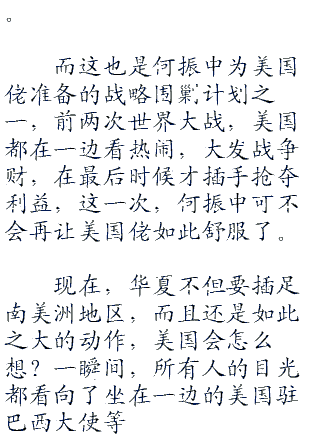 。
而这也是何振中为美国
佬准备的战略围剿计划之
一，前两次世界大战，美国
都在一边看热闹，大发战争
财，在最后时候才插手抢夺
利益，这一次，何振中可不
会再让美国佬如此舒服了。
现在，华夏不但要插足
南美洲地区，而且还是如此
之大的动作，美国会怎么
想？一瞬间，所有人的目光
都看向了坐在一边的美国驻
巴西大使等